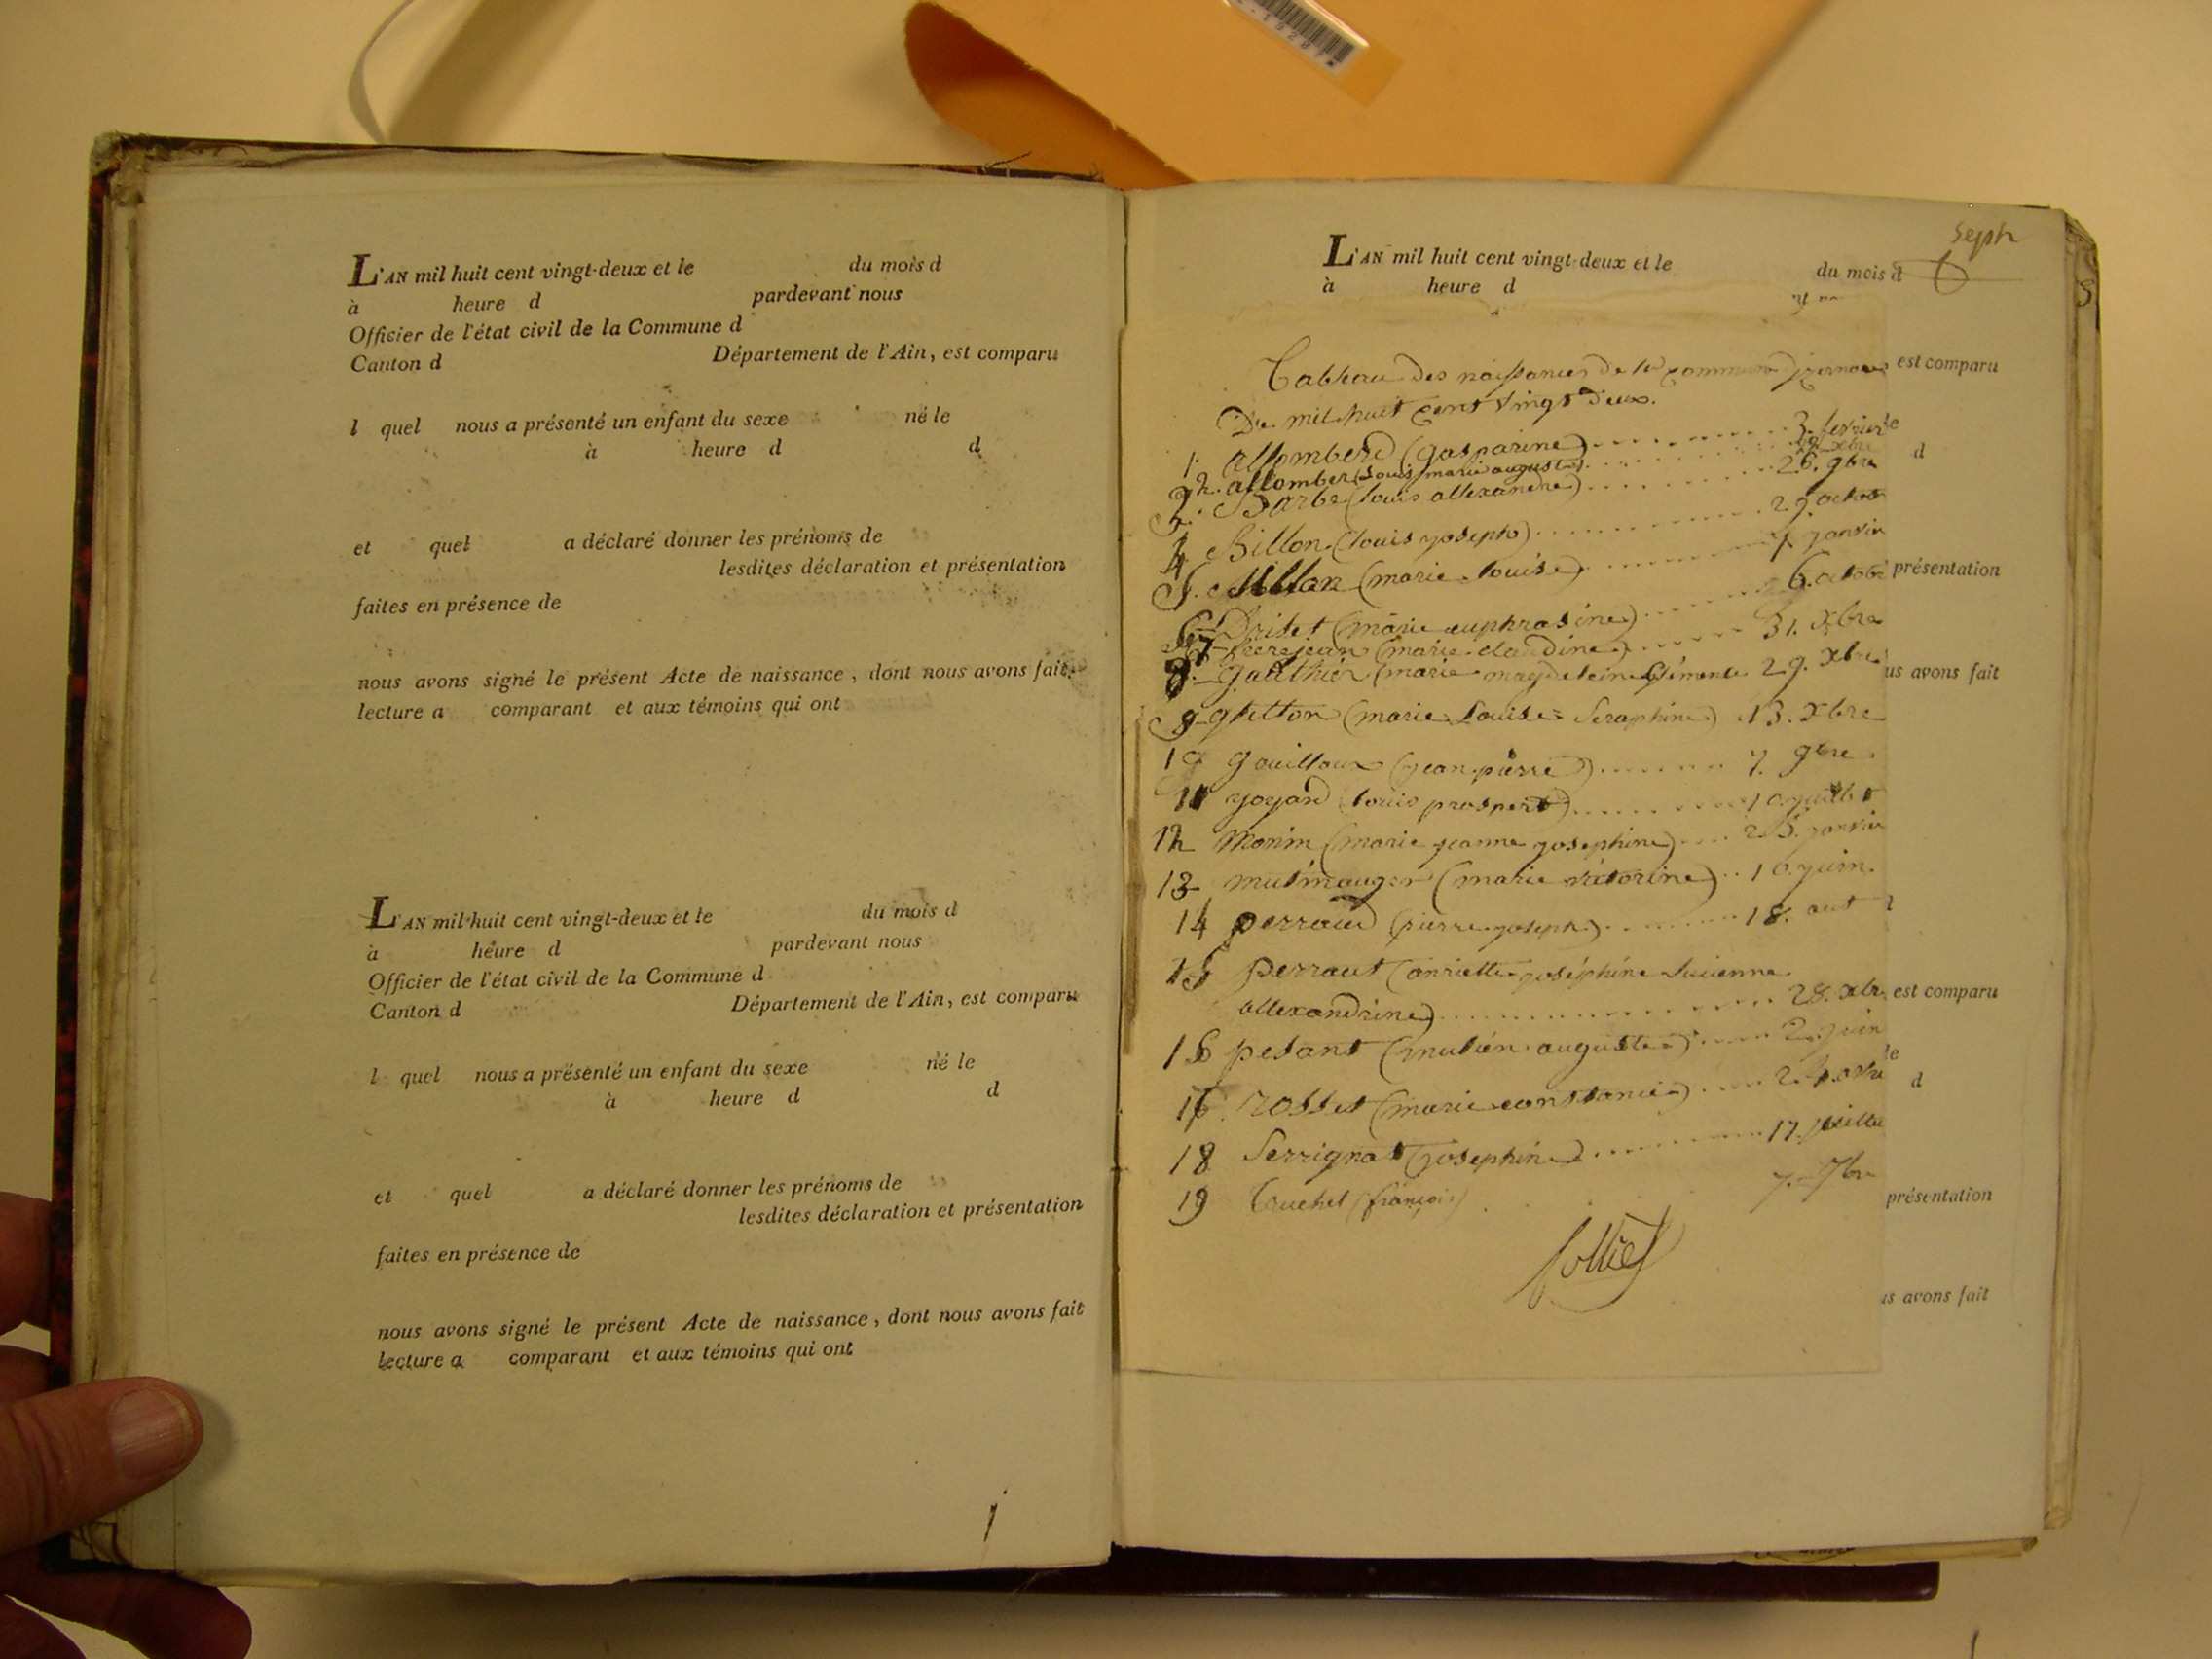 L'AN mil huit cent vingt-deux et le du mois d
à heure d pardevant nous
Officier de l'état civil de la Commune d
Canton d Département de l'Ain, est comparu
l quel nous a présenté un enfant du sexe né le
à heure d d
et quel a déclaré donner les prénoms de
lesdites déclaration et présentation
faites en présence de
nous avons signé le présent Acte de naissance, dont nous avons fait
lecture a comparant et aux témoins qui ont
L'AN mil huit cent vingt-deux et le du mois d
à heure d pardevant nous
Officier de l'état civil de la Commune d
Canton d Département de l'Ain, est comparu
l quel nous a présenté un enfant du sexe né le
à heure d d
et quel a déclaré donner les prénoms de
lesdites déclaration et présentation
faites en présence de
nous avons signé le présent Acte de naissance, dont nous avons fait
lecture a comparant et aux témoins qui ont
L'AN mil huit cent vingt-deux et le du mois d
à heure d
Tableau des naissances de la commune
De mil huit cent vingt deux.
1. allomberd (gasparine) 3. fevrier
2. allomber (Louis marie auguste) xbre
3. Barbe (louis allexandre) 26. gbre
4 Billon (louis joseph) 29. octob
5. Millan (marie louise) janvier
6 Driset (marie euphrasine) 6. octobr
7 Ferrejean (marie claudine) 31. xbre
8. gauthier (marie magdeleine Clémente 29. xbre
9 gretton (marie Louise Seraphine) 13. xbre
10 gouilloux (jean pierre) 7. gbre.
11 joyard (louis prospert) 10. juillet
12 Monin (marie jeanne josephine) 25. janvier
13 (marie victorine) 10. juin.
14 perraud (pierre joseph) 18. aut
15 perraut (anriette joséphine Lucienne
allexandrine) 28. xbr
16 pesant (auguste) 2. juin
17 rosset (marie constance)
18 Serrignat (josephine) 17. juillet
19 Truchet (françois) 7. 7bre
est comparu
le
d
présentation
us avons fait
est comparu
le
d
présentation
us avons fait